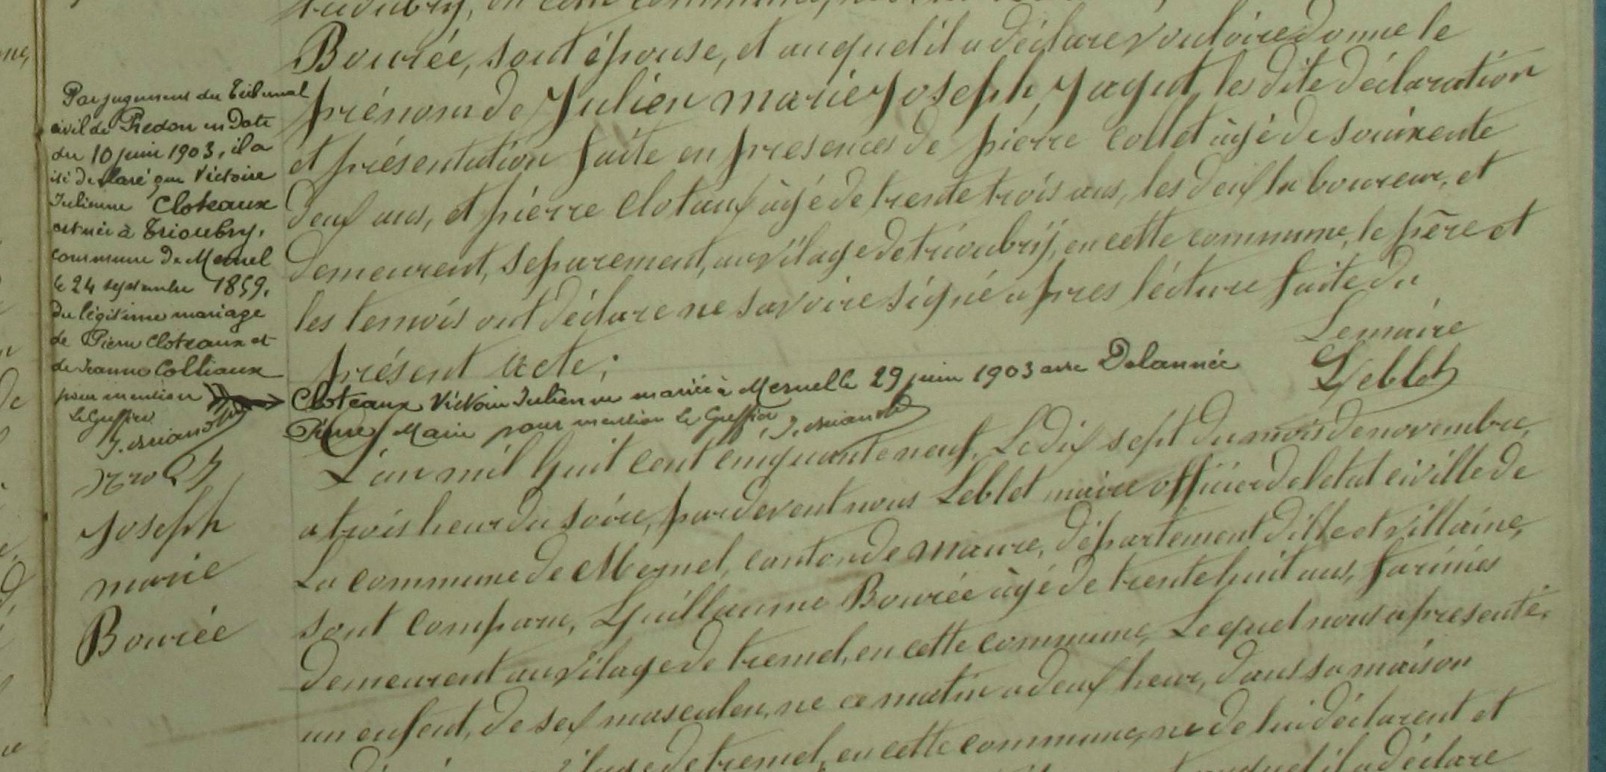 Bouiée, sont épouse, et auquel il a déclare vouloire donne le
prénom de Julien marie Joseph Jagut, les dite déclaration
et présentation faite en presences de pierre Collet âgé de souixente
deux ans, et pierre Clotaux âgé de trente trois ans, les deux laboureur, et
demeurent, separement, au vilage de trioubry, en cette commune, le père et
les temois ont déclare ne savoire signé apres lécture faite du
présent acte;
Lemaire
Leblet
Par jugement du Tribunal
civil de Redon en date
du 10 juin 1903, il a
été declaré que Victoire
Julienne Cloteaux
est née à Trioubry,
commune de Mernel
le 24 septembre 1859,
du légitime mariage
de Pierre Cloteaux et
de Jeanne Colliaux
pour mention
Le Greffier
Cloteaux Victoire Julienne mariée à Mernel le 29 juin 1903 avec Delannée
Pierre Marie pour mention Le Greffier
Joseph
marie
Bouiée
L'an mil huit cent cinquante neuf, Le dix sept du mois de novembre,
a trois heur du soire, par devent nous Leblet maire officier de letat civille de
La commune de Mernel, canton de maure, département dille et villaine,
sont comparu, Guillaume Bouiée âgé de trente huit ans, farinies
demeurent au vilage de tremel, en cette commune, Lequel nous a presenté,
un enfent, de sex masculen, ne ce matin a deux heur, dans sa maison
vilage de tremel, en cette commune, ne de lui déclarent et
auquel il a déclare